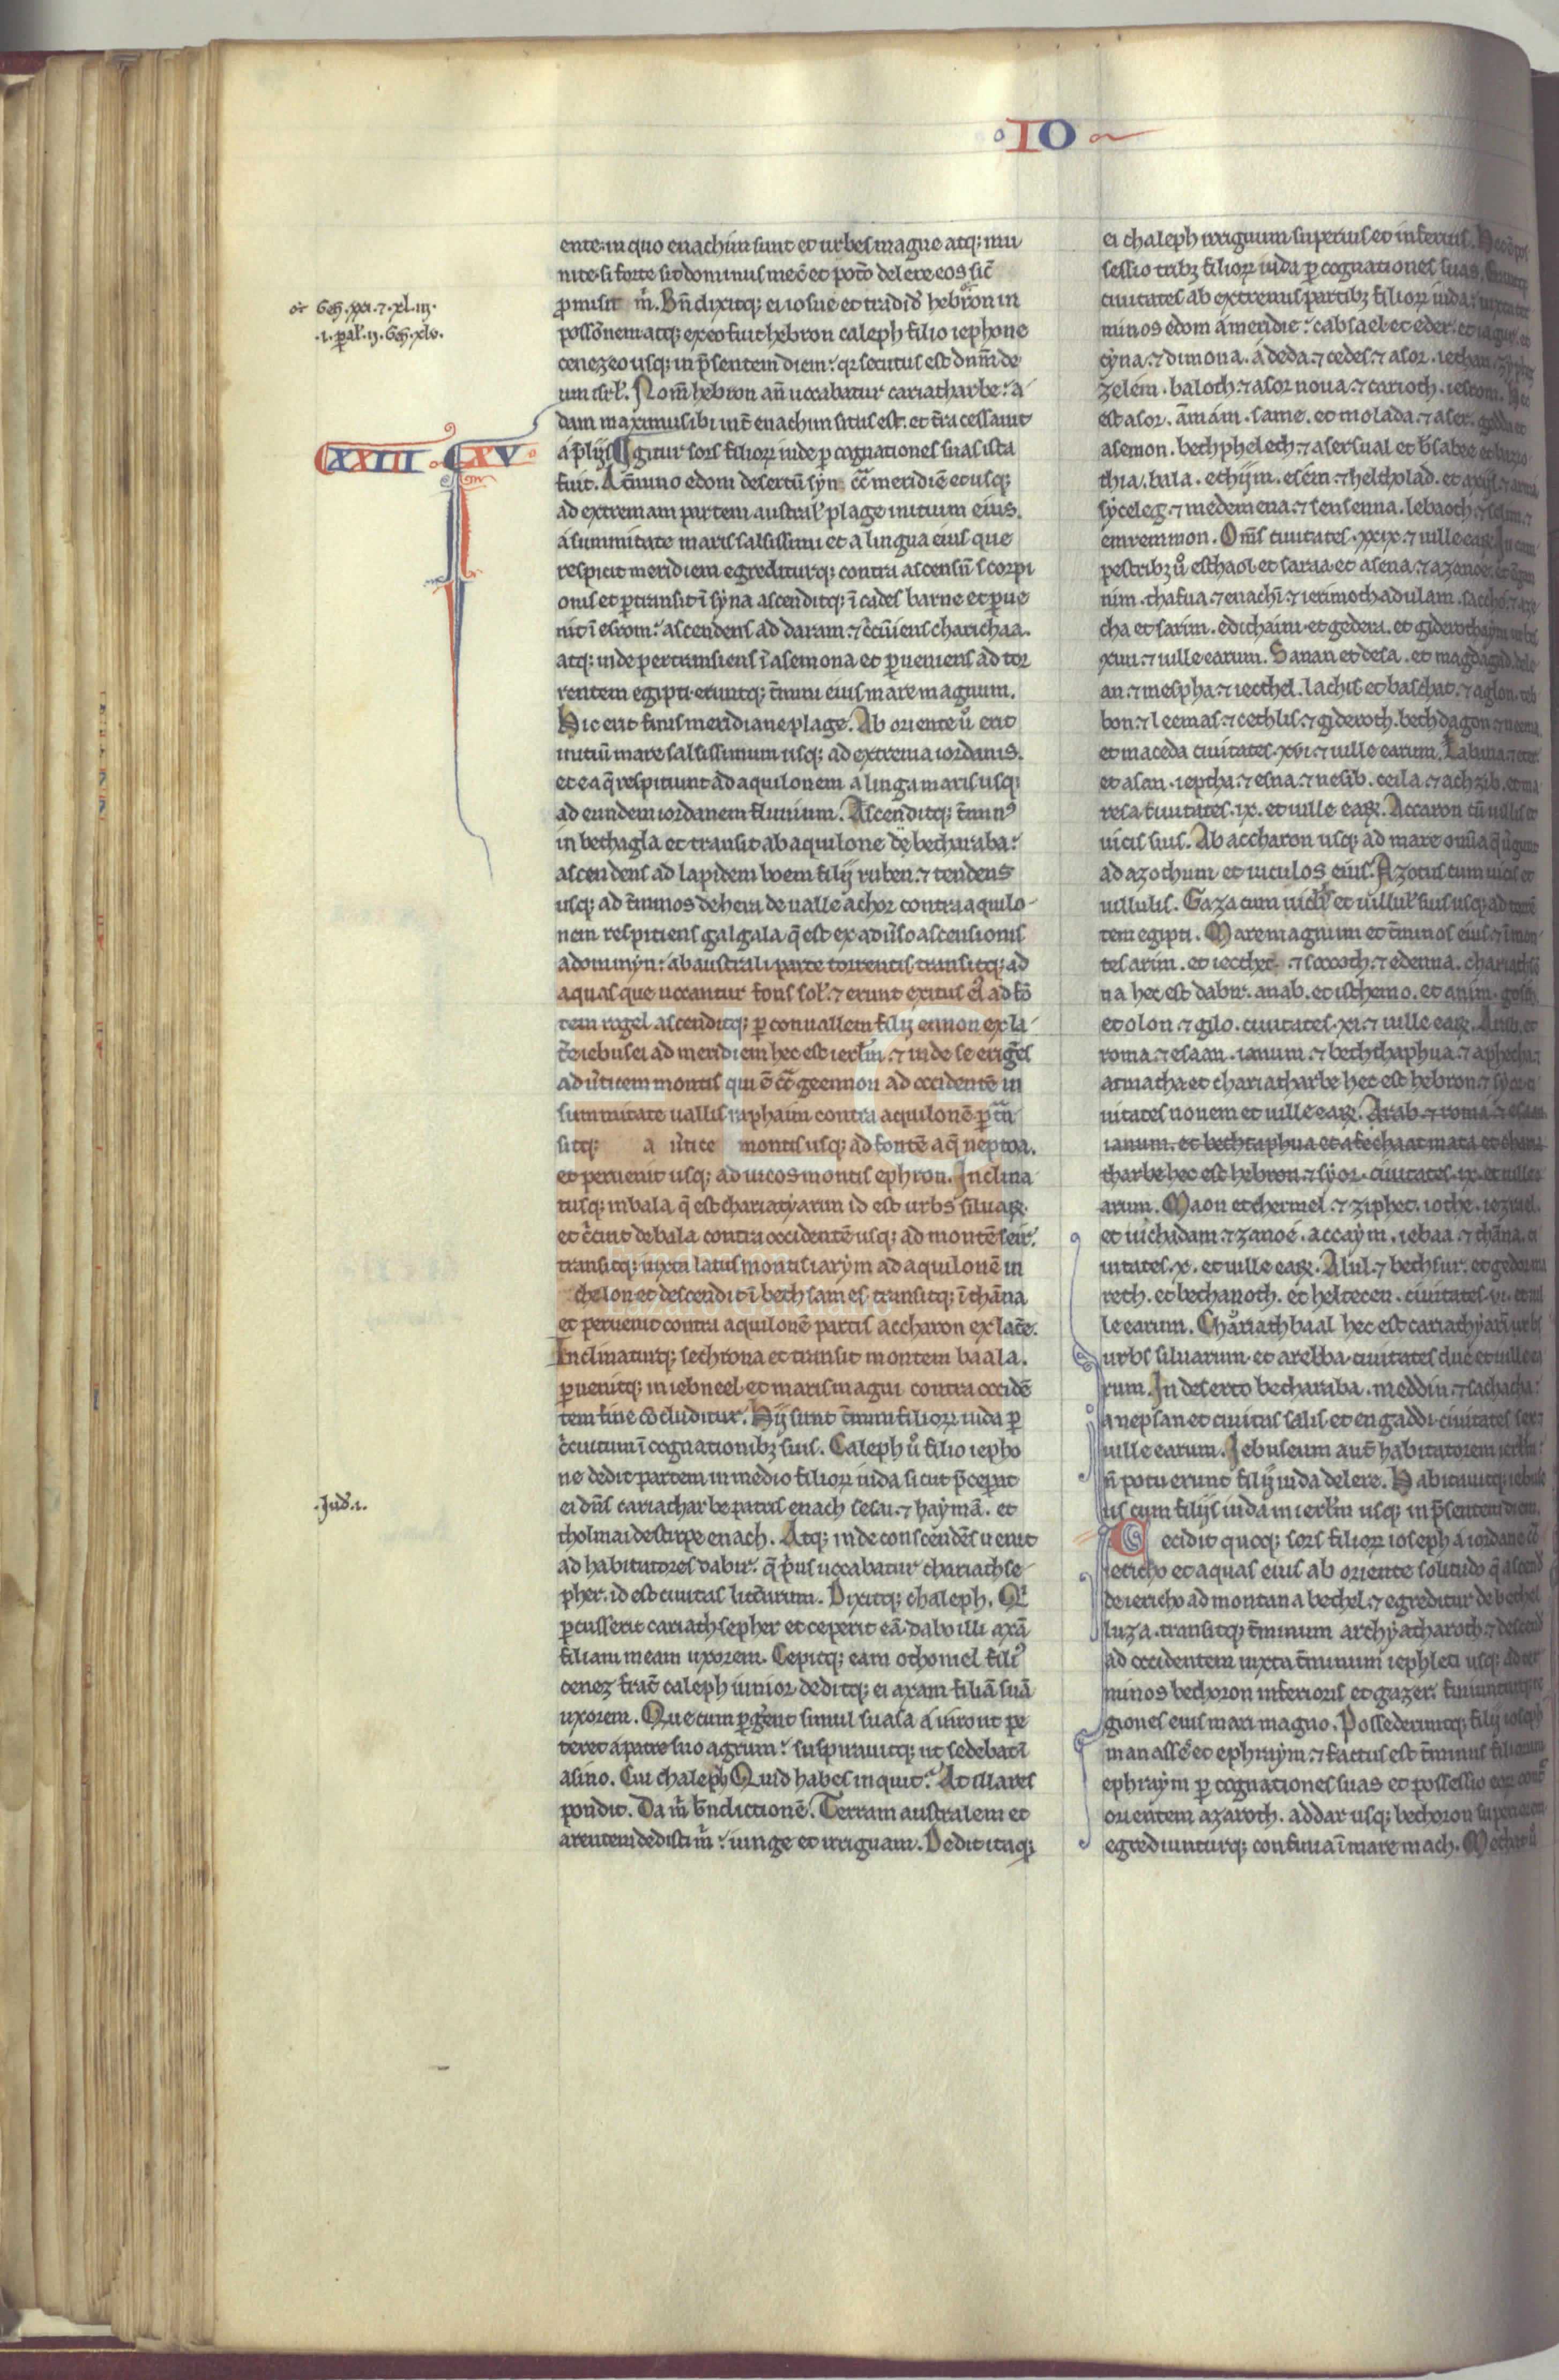 IO
ente. in quo enachim sunt et urbes magne atq; mu
nite. si forte sit dominus mec̄ et potō delere eos sic̄
ꝓmisit m̄. Bn̄dixitq; ei iosue et tradid' hebron in
possōnem atq; ex eo fuit hebron caleph filio iephone
cenezeo usq; in p̄sentem diem: qr secutus est dnm̄ de
um isrl'. Nom̄ hebron an̄ uocabatur cariatharbe: a
dam maximus ibi int̄ enachim situs est. et t̄ra cessauit
a p̄lijs Igitur sors filioꝝ iude ꝑ cognationes suas ista
fuit. A t̄mino edom desertū syn c̄t̄ meridiē et usq;
ad extremam partem austral' plage initium eius.
a summitate maris salsissimi et a lingua eius que
respicit meridiem egrediturq; contra ascensū scorpi
onis et ꝑtransit ī syna ascenditq; ī cades barne et ꝑue
nit ī esrom: ascendens ad daram. ⁊ c̄cūiens charichaa.
atq; inde pertransiens ī asemona et ꝑueniens ad tor
rentem egipti. eruntq; t̄mini eius mare magnum.
Hic erit finis meridiane plage. Ab oriente ů erit
initiū mare salsissimum usq; ad extrema iordanis.
et ea q̄ respiciunt ad aquilonem a linga maris usq;
ad eundem iordanem fluuium. Ascenditq; t̄min⁹
in bethagla et transit ab aquilone de betharaba:
ascendens ad lapidem boem filij ruben. ⁊ tendens
usq; ad t̄minos debera de ualle achor contra aquilo
nem respiciens galgala q̄ est ex adūso ascensionis
adommyn: ab australi parte torrentis. transitq; ad
aquas que uocantur fons sol'. ⁊ erunt exitus ei' ad fō
tem rogel. ascenditq; ꝑ conuallem filij ennon ex la
t̄e iebusei ad meridiem hec est ierl'm. ⁊ inde se erigēs
ad ūticem montis qui ē c̄t̄ geennon ad occidentē in
summitate uallis raphaim contra aquilonē ꝑt̄n
sitq; a ūtice montis usq; ad fontē aq̄ neptoa.
et peruenit usq; ad uicos montis ephron. Inclina
tusq; in bala q̄ est chariatyarim id est urbs siluaꝝ.
et c̄cuit de bala contra occidentē usq; ad montē seir.
transitq; iuxta latus montis iarym ad aquilonē in
chelon et descendit ī bethsames transitq; ī thāna
et peruenit contra aquilonē partis accharon ex lat̄e.
Inclinaturq; sechrona et transit montem baala.
ꝑuenitq; in iebneel. et maris magni contra occidē
tem fine cōcluditur. Hij sunt t̄mini filioꝝ iuda ꝑ
c̄cuitum ī cognationibꝫ suis. Caleph ů filio iepho
ne dedit partem in medio filioꝝ iuda sicut p̄ceperat
ei dn̄s cariatharbe patris enach sesai. ⁊ haymā. et
tholmai de stirpe enach. Atq; inde conscendēs uenit
ad habitatores dabir. q̄ p̄us uocabatur chariathse
pher. id est ciuitas litt̄arum. Dixitq; chaleph. Qi
ꝑcusserit cariathsepher et ceperit eā. dabo illi axā
filiam meam uxorem. Cepitq; eam othoniel fili⁹
cenez frat̄ caleph iunior. deditq; ei axam filiā suā
uxorem. Que cum ꝑgēnt simul suasa a uiro ut pe
teret a patre suo agrum: suspirauitq; ut sedebat ī
asino. Cui chaleph Quid habes inquit: At illa res
pondit. Da m̄ bn̄dictionē. Terram australem et
arentem dedisti m̄: iunge et irriguam. Dedit itaq;
ei chaleph irriguum superius et inferius. Hec
sessio tribꝫ filioꝝ iuda ꝑ cognationes suas.
ciuitates ab extremis partibꝫ filioꝝ iuda
minos edom a meridie: cabsael. et eder. et iagur. et
cyna. ⁊ dimona. adeda. ⁊ cedes. ⁊ asor. iethan
zelem. baloth. ⁊ asor noua. ⁊ carioth. iesrom. Hec
est asor. āmam. same. et molada. ⁊ aser. gadda et
asemon. bethpheleth. ⁊ asersual et b̄sabee et
thia. bala. et hijm. esem. ⁊ heltholad.
syceleg. ⁊ medemena. ⁊ sensenna. lebaoth. ⁊ selim. ⁊
emremmon. Om̄s ciuitates. xxix. ⁊ uille eaꝝ. In cam
pestribꝫ ů esthaol et saraa et asena. ⁊ azanoe.
nim. thafua. ⁊ enachī. ⁊ ierimoth adulam. saccho. ⁊
cha et sarim. edithaim. et gedera. et giderothaym urbes
xiiii. ⁊ uille earum. Sanan et desa. et magdagad. dele
an. ⁊ mespha. ⁊ iecthel. lachis et baschat. ⁊ aglon.
bon. ⁊ leemas. ⁊ cethlis. ⁊ gideroth. bethdagon. ⁊ neema.
et maceda ciuitates. xvi. ⁊ uille earum. Labana. ⁊ eter
et asan. ieptha. ⁊ esna. ⁊ nesib. ceila. ⁊ achzib. et ma
resa. ciuitates. ix. et uille eaꝝ. Accaron cū uillis et
uicis suis. Ab accharon usq; ad mare omīa
ad azothum et uiculos eius. Azotus cum uicis et
uillulis. Gaza cum uicis et uillul' suis usq; ad
tem egipti. Mare magnum et t̄minos eius. ⁊ ī mon
te sarim. et iecther. ⁊ socoth. ⁊ edenna. chariathse
na hec est dabir. anab. et isthemo. et anim. gosen
et olon. ⁊ gilo. ciuitates. xi. ⁊ uille eaꝝ. Arab. et
roma. ⁊ esaan. ianum. ⁊ bechthaphua. ⁊ aphecha. ⁊
atmatha et chariatharbe hec est hebron. ⁊ syor.
uitates nouem et uille eaꝝ. Arab. ⁊ roma. ⁊ esaan.
ianum. et bechtaphua et afecha atmata et charia
tharbe hec est hebron. ⁊ syor. ciuitates. ix. et uille e
arum. Maon et chermel. ⁊ ziphet. iothe. iezrael.
et uichadam. ⁊ zanoe. accaym. iebaa. ⁊ thāna. ci
uitates. x. et uille eaꝝ. Alul. ⁊ bethsur. et
reth. et bethanoth. et heltecen. ciuitates. vi.
le earum. Chariathbaal hec est cariathyarī urbs
urbs siluarum. et arebba. ciuitates due et uille ea
rum. In deserto betharaba. meddin. ⁊ sachacha:
anepsan et ciuitas salis. et engaddi. ciuitates sex. ⁊
uille earum. Iebuseum aut̄ habitatorem ierl'm:
n̄ potuerunt filij iuda delere. Habitauitq; iebuse
us cum filijs iuda in ierl'm usq; in p̄sentem diem.
Cecidit quoq; sors filioꝝ ioseph a iordane cō
iericho et aquas eius ab oriente solitudo q̄ ascend
de iericho ad montana bethel. ⁊ egreditur de bethel
luza. transitq; t̄minum archyatharoth. ⁊ descend
ad occidentem iuxta t̄minum iephleti usq; ad ter
minos bethoron inferioris et gazer. finiunturq; re
giones eius mari magno. Possederuntq; filij ioseph
manasse et ephraym. ⁊ factus est t̄minus filiorum
ephraym ꝑ cognationes suas et possessio eoꝝ
orientem azaroth. addar usq; bethoron superiorem
egrediunturq; confinia ī mare mach.
oc Geñ. xxi. ⁊ xl. iij.
.i. ꝑal. ij. Geñ. xlv.
CXXIII
XV
.Jud. i.
Fundación
Lázaro Galdiano